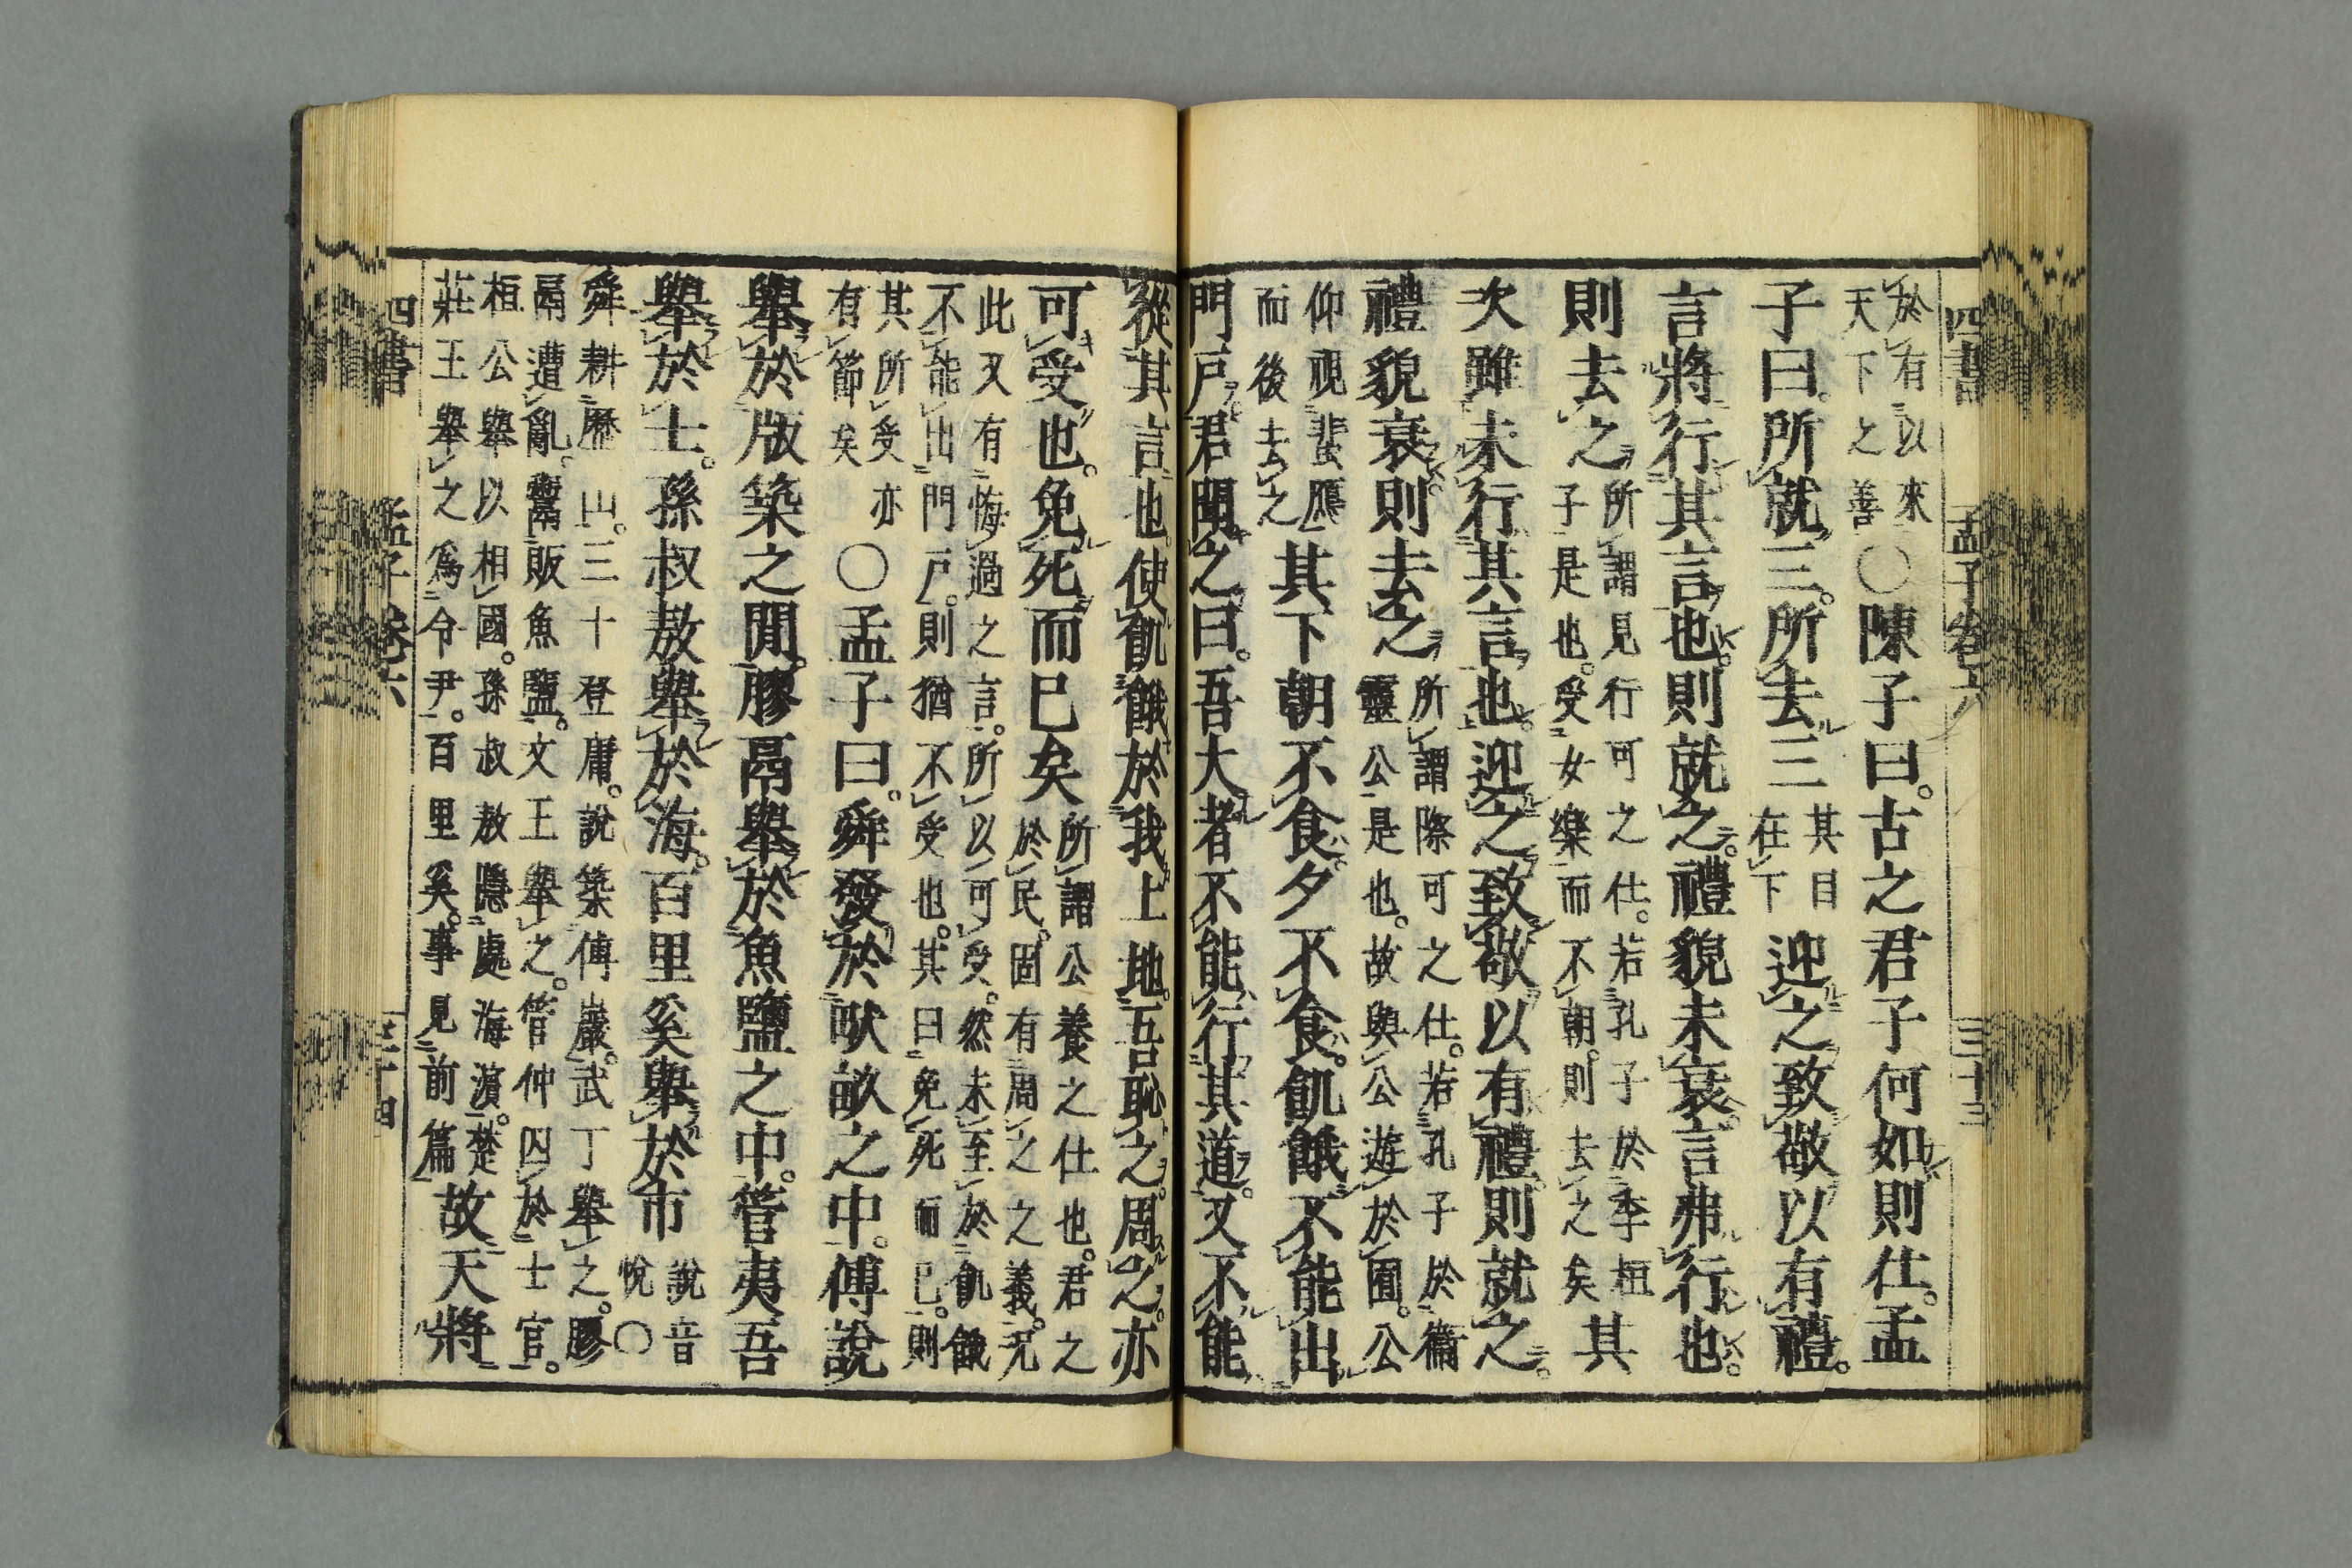 四書 孟子卷六 三十三
於有以來
天下之善
○陳子曰。古之君子何如則仕。孟
子曰。所就三。所去三
其目
在下
迎之致敬以有禮。
言將行其言也。則就之。禮貌未衰。言弗行也。
則去之
所謂見行可之仕。若孔子於季桓
子是也。受女樂而不朝。則去之矣
其
次雖未行其言也。迎之致敬以有禮。則就之。
禮貌衰。則去之
所謂際可之仕。若孔子於衞
靈公是也。故與公遊於囿。公
仰視蜚鴈
而後去之
其下朝不食。夕不食。飢餓不能出
門戶。君聞之曰。吾大者不能行其道。又不能
從其言也。使飢餓於我土地。吾恥之。周之。亦
可受也。免死而已矣
所謂公養之仕也。君之
於民。固有周之之義。況
此又有悔過之言。所以可受。然未至於飢餓
不能出門戶。則猶不受也。其曰免死而已。則
其所受亦
有節矣
○孟子曰。舜發於畎畝之中。傅說
舉於版築之閒。膠鬲舉於魚鹽之中。管夷吾
舉於士。孫叔敖舉於海。百里奚舉於市
說音
悅○
舜耕歷山。三十登庸。說築傅巖。武丁舉之。膠
鬲遭亂。鬻販魚鹽。文王舉之。管仲囚於士官。
桓公舉以相國。孫叔敖隱處海濱。楚
莊王舉之爲令尹。百里奚。事見前篇
故天將
四書 孟子卷六 三十四